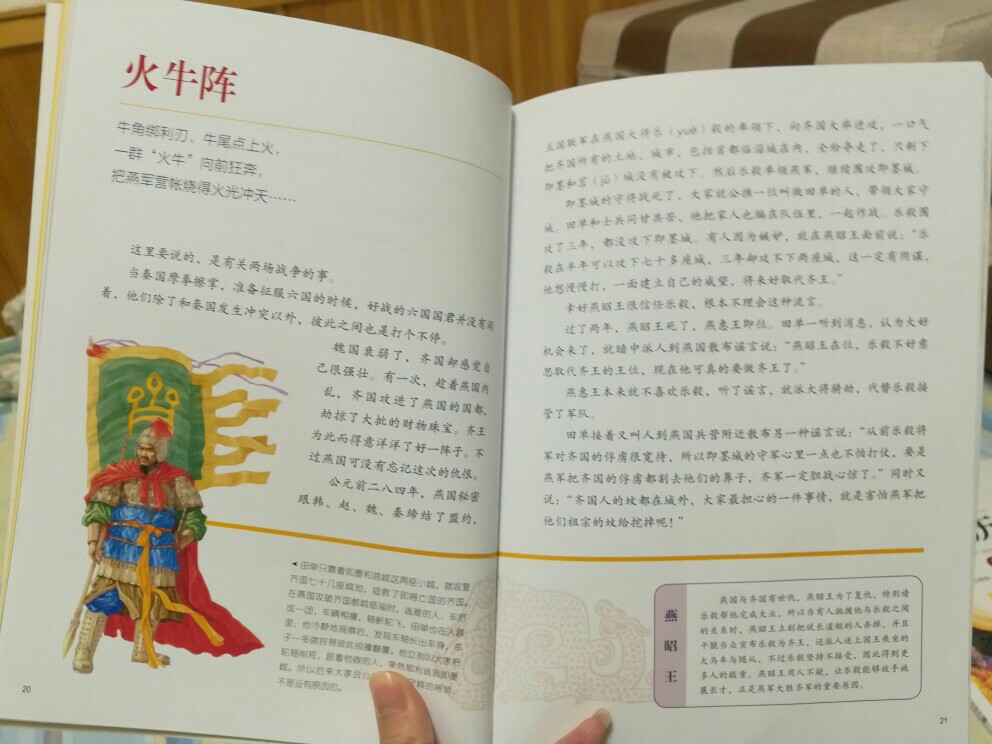 火牛阵
牛角绑利刃，牛尾点上火，
一群“火牛”向前狂奔，
把燕军营帐烧得火光冲天……
这里要说的，是有关两场战争的事。
当秦国摩拳擦掌，准备征服六国的时候，好战的六国国君并没有闲
着，他们除了和秦国发生冲突以外，彼此之间也是打个不停。
魏国衰弱了，齐国却感觉自
己很强壮。有一次，趁着燕国内
乱，齐国攻进了燕国的国都，
劫掠了大批的财物珠宝。齐王
为此而得意洋洋了好一阵子。不
过燕国可没有忘记这次的仇恨。
公元前二八四年，燕国秘密
跟韩、赵、魏、秦缔结了盟约，
田单只靠着即墨和莒城这两座小城，就收复
齐国七十八座城池，拯救了即将亡国的齐国。
在燕国攻破齐国都城临淄时，逃难的人、车挤
成一团，车辆相撞，轴断轮飞。田单也在人群
里，他冷静地观察后，发现车轴长出车身，车
子一多就容易彼此投撞翻覆。他立刻叫大家把
轮轴削短，跟着他做的人，果然顺利逃离即墨
城。所以后来大家会公
不是没有原因的。
20
五国联军在燕国大将乐（yuè）毅的率领下，向齐国大举进攻，一口气
把齐国所有的土地、城市，包括首都临淄城在内，全给夺走了，只剩下
即墨和莒（jǔ）城没有被攻下。然后乐毅率领燕军，继续围攻即墨城。
即墨城的守将战死了，大家就公推一位叫做田单的人，带领大家守
城。田单和士兵同甘共苦，他把家人也编在队伍里，一起作战。乐毅围
攻了三年，都没攻下即墨城。有人因为嫉妒，就在燕昭王面前说：“乐
毅在半年可以攻下七十多座城，三年却攻不下两座城，这一定有阴谋，
他想慢慢打，一面建立自己的威望，将来好取代齐王。”
幸好燕昭王很信任乐毅，根本不理会这种流言。
过了两年，燕昭王死了，燕惠王即位。田单一听到消息，认为大好
机会来了，就暗中派人到燕国散布谣言说：“燕昭王在位，乐毅不好意
思取代齐王的王位，现在他可真的要做齐王了。”
燕惠王本来就不喜欢乐毅，听了谣言，就派大将骑劫，代替乐毅接
管了军队。
田单接着又叫人到燕国兵营附近散布另一种谣言说：“从前乐毅将
军对齐国的俘虏很宽待，所以即墨城的守军心里一点也不怕打仗，要是
燕军把齐国的俘虏都割去他们的鼻子，齐军一定胆战心惊了。”同时又
说：“齐国人的坟都在城外，大家最担心的一件事情，就是害怕燕军把
他们祖宗的坟给挖掉呢！”
燕昭王
燕国与齐国有世仇，燕昭王为了复仇，特别请
乐毅帮他完成大业，所以当有人挑拨他与乐毅之间
的关系时，燕昭王立刻把说长道短的人杀掉，并且
干脆当众宣布乐毅为齐王，还派人送上国王乘坐的
大马车与随从，不过乐毅坚持不接受，因此得到更
多人的敬重。燕昭王用人不疑，让乐毅能够放手施
展长才，正是燕军大胜齐军的重要原因。
21